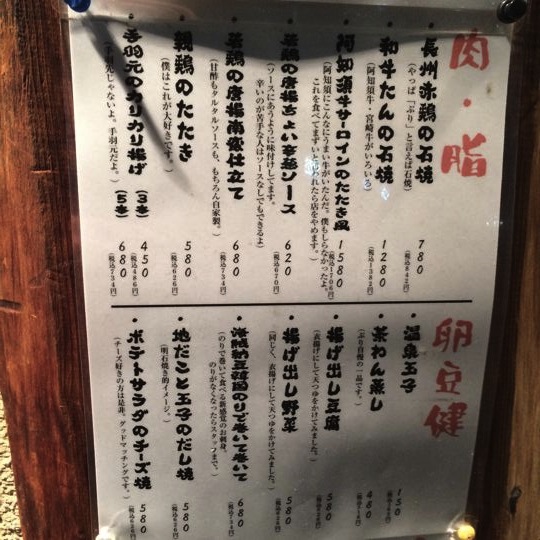 肉・脂
・長州赤鶏の石焼
(やっぱ「ぶり」と言えば石焼)
780
(税込842円)
・和牛たんの石焼
(阿知須牛・宮崎牛がいろいろ)
1280
(税込1382円)
・阿知須牛サーロインのたたき風
(阿知須にこんなにうまい牛がいたんだ。僕もしらなかったよ。
これを食べてまずいと
たら店をやめます。)
1580
(税込1706円)
・若鶏の唐揚ちょい辛葱ソース
(ソースにあうように味付けしてます。
辛いのが苦手な人はソースなしでもできるよ)
620
(税込670円)
・若鶏の唐揚南蛮仕立て
(甘酢もタルタルソースも、もちろん自家製。)
680
(税込734円)
・親鶏のたたき
(僕はこれが大好きです。)
580
(税込626円)
・手羽元のカリカリ揚げ
(手羽先じゃないよ。手羽元だよ。)
(3本) 450
(税込486円)
(5本) 680
(税込734円)
卵豆健
・温泉玉子
150
・茶わん蒸し
(ぶり自慢の一品です。)
480
・揚げ出し豆腐
(衣揚げにして天つゆをかけてみました。)
580
・揚げ出し野菜
(同じく、衣揚げにして天つゆをかけてみました。)
580
・海賊納豆韓国のりで巻いて巻いて
(のりで巻いて食べる新感覚のお刺身。
のりがなくなったらスタッフまで。)
680
(税込734円)
・地だこと玉子のだし焼
(明石焼き的イメージ。)
580
(税込626円)
・ポテトサラダのチーズ焼
(チーズ好きの方は是非。グッドマッチングです。)
580
(税込626円)